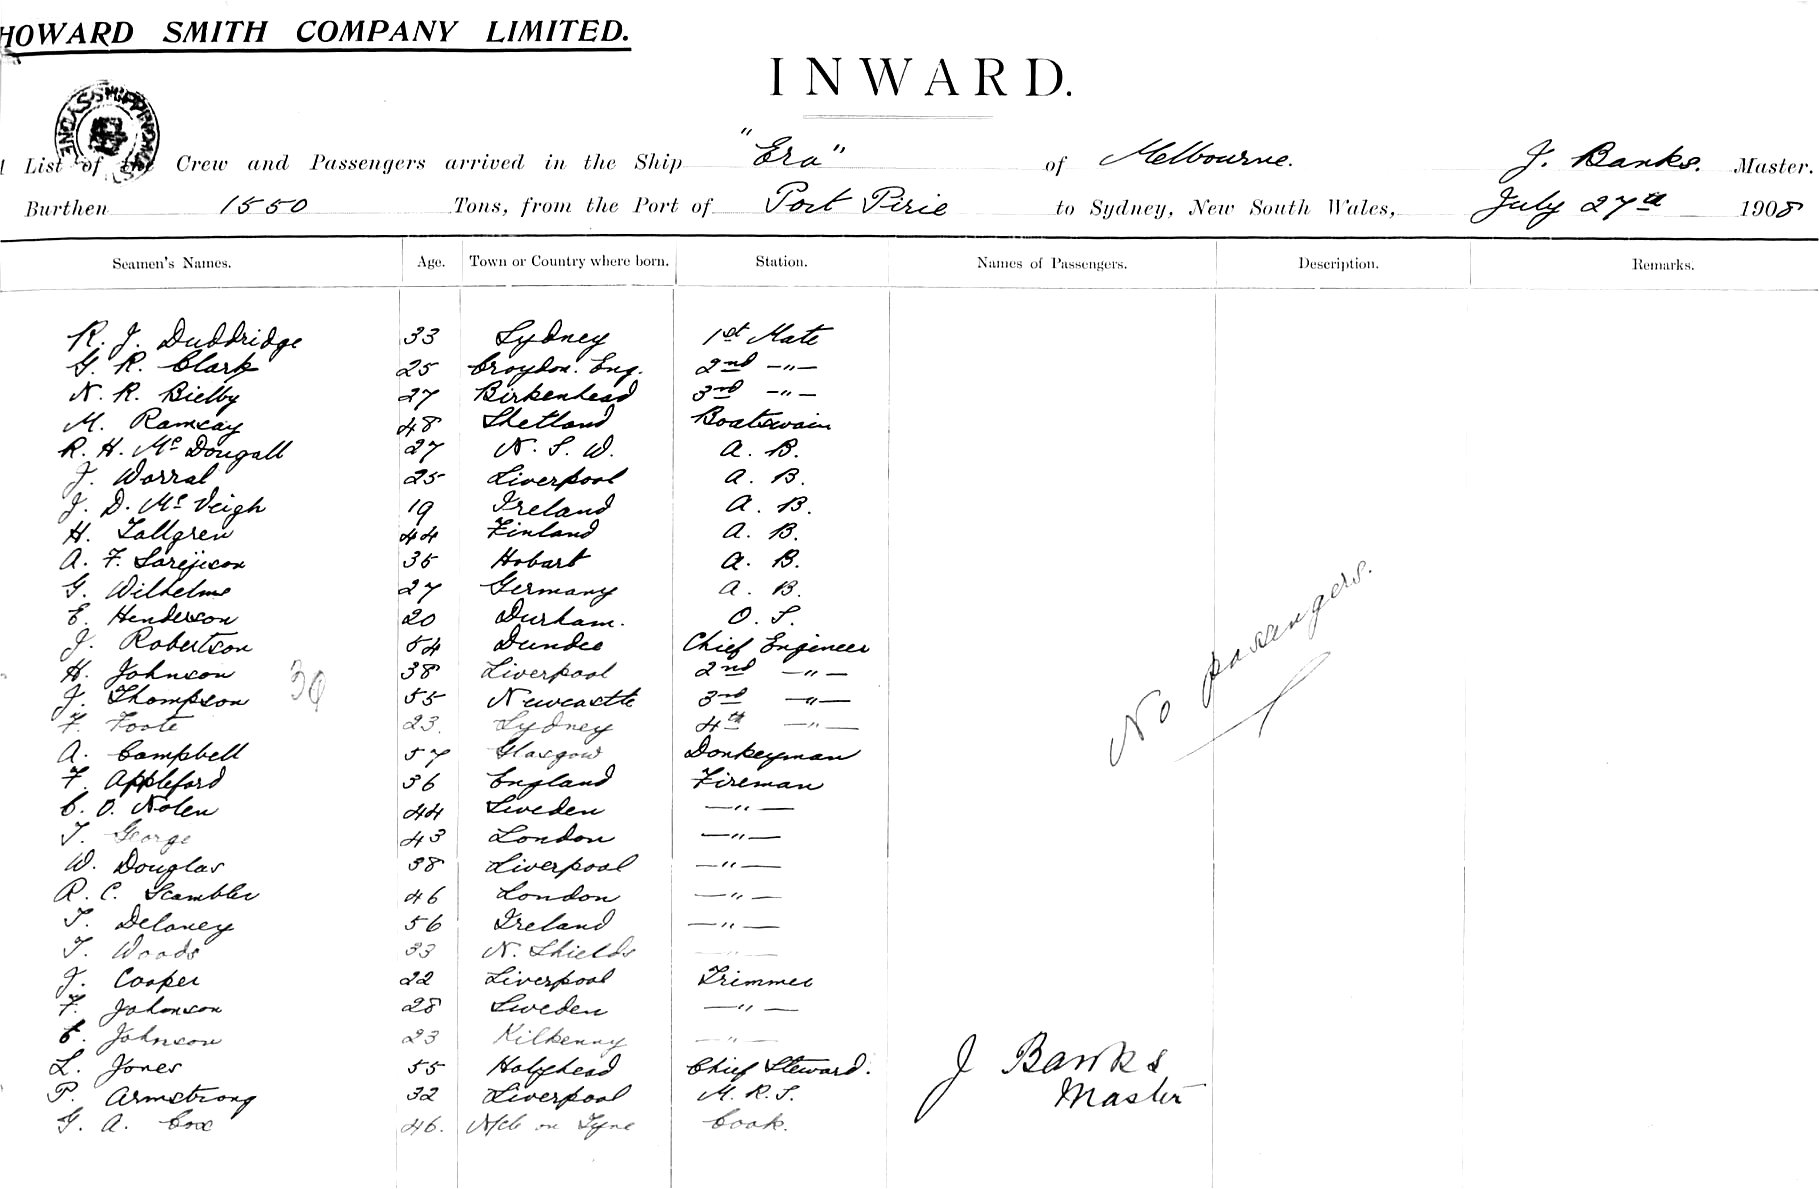 HOWARD SMITH COMPANY LIMITED.
INWARD.
List of the Crew and Passengers arrived in the Ship "Era" of Melbourne. J. Banks. Master.
Burthen 1550 Tons, from the Port of Port Pirie to Sydney, New South Wales, July 27th 1908
Seamen's Names. Age. Town or Country where born. Station. Names of Passengers. Description. Remarks.
R. J. Duddridge 33 Sydney 1st Mate
G. R. Clark 25 Croydon. Eng. 2nd —"—
N. R. Bielby 27 Birkenhead 3rd —"—
M. Ramsay 48 Shetland Boatswain
R. H. McDougall 27 N. S. W. A. B.
J. Worral 25 Liverpool A. B.
J. D. McVeigh 19 Ireland A. B.
H. Tallgren 44 Finland A. B.
A. F. 35 Hobart A. B.
G. Wilhelms 27 Germany A. B.
E. Henderson 20 Durham. O. S.
J. Robertson 54 Dundee Chief Engineer
H. Johnson 38 Liverpool 2nd —"—
30
J. Thompson 55 Newcastle 3rd —"—
F. Foote 23. Sydney 4th —"—
A. Campbell 57 Glasgow Donkeyman
F. Appleford 36 England Fireman
C. O. Nolen 44 Sweden —"—
T. George 43 London —"—
W. Douglas 38 Liverpool —"—
R. C. Scambler 46 London —"—
T. Delaney 56 Ireland —"—
T. Woods 33 N. Shields —"—
J. Cooper 22 Liverpool Trimmer
F. Johnson 28 Sweden —"—
C. Johnson 23 Kilkenny —"—
L. Jones 55 Holyhead Chief Steward.
P. Armstrong 32 Liverpool M. R. S.
G. A. Cox 46. N/c on Tyne Cook.
No passengers.
J Banks
Master